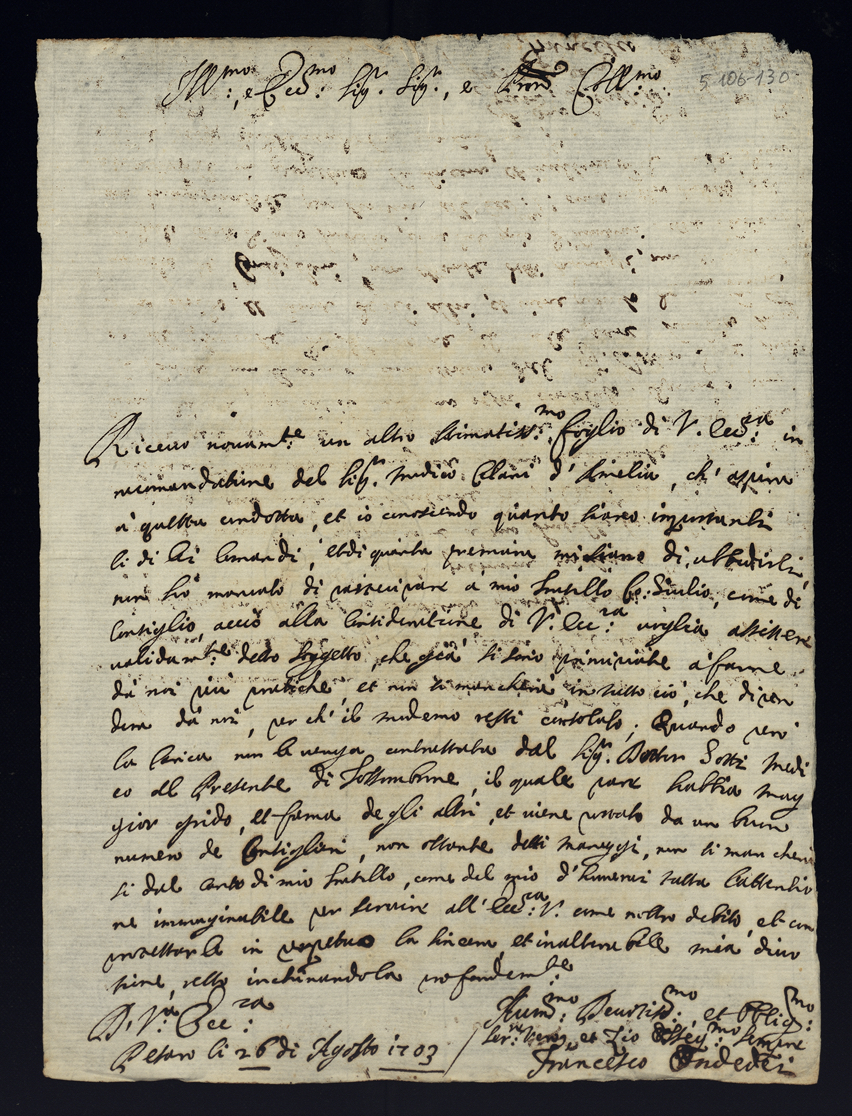 5 106-130
Ill.mo, e Ecc.mo Sig.r Sig.r, e Pron Coll.mo
Ricevo novam.te un altro stimatiss.mo foglio di V. Ecc.za in
racomandatione del Sig.r Medico Clari d'Amelia, ch'aspira
a questa condotta, et io conoscendo quanto siano importanti
li di Lei Comandi, et di quanta premura mi siano di ubbidirli,
non hò mancato di partecipare à mio fratello Co: Giulio, come di
Consiglio, acciò alla Consideratione di V. Ecc.za voglia assistere
validam.te detto Soggetto, che già si sono principiate a farne
da noi più pratiche, et non si mancherà in tutto ciò, che dipen
derà da noi, per ch'il medemo resti consolato; Quando però
la Carica non le venga contrastata dal Sig.r Dottor Sotti Medi
co al Presente di Fossombrone, il quale pare habbia mag
gior grido, et fama de gli altri, et viene portato da un buon
numero de Consiglieri, non ostante detti maneggi, non si mancherà
si dal canto di mio fratello, come del mio d'haverci tutta l'attentio
ne immaginabile per servire all'Ecc.za V. come nostro debito, et con
protestarle in perpetuo la sincera, et inalterabile mia divo
tione, resto inchinandola profondam.te
D. V.ra Ecc.za
Pesaro li 26 di Agosto 1703
Hum.mo Devotiss.mo et Obblig.mo
Ser.re Vero, et Zio Osseq.mo Sempre
Francesco Ondedei